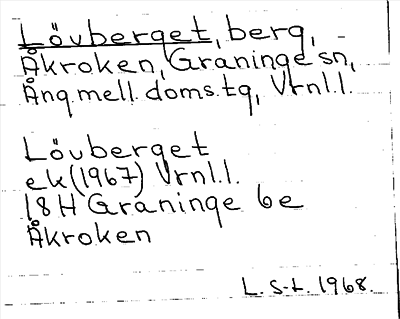 Lövberget, berg,
Åkroken, Graninge sn,
Ång.mell. doms.tg, Vrnl.l.
Lövberget
ek(1967) Vrnl.l.
18H Graninge 6e
Åkroken
L. S-t. 1968.